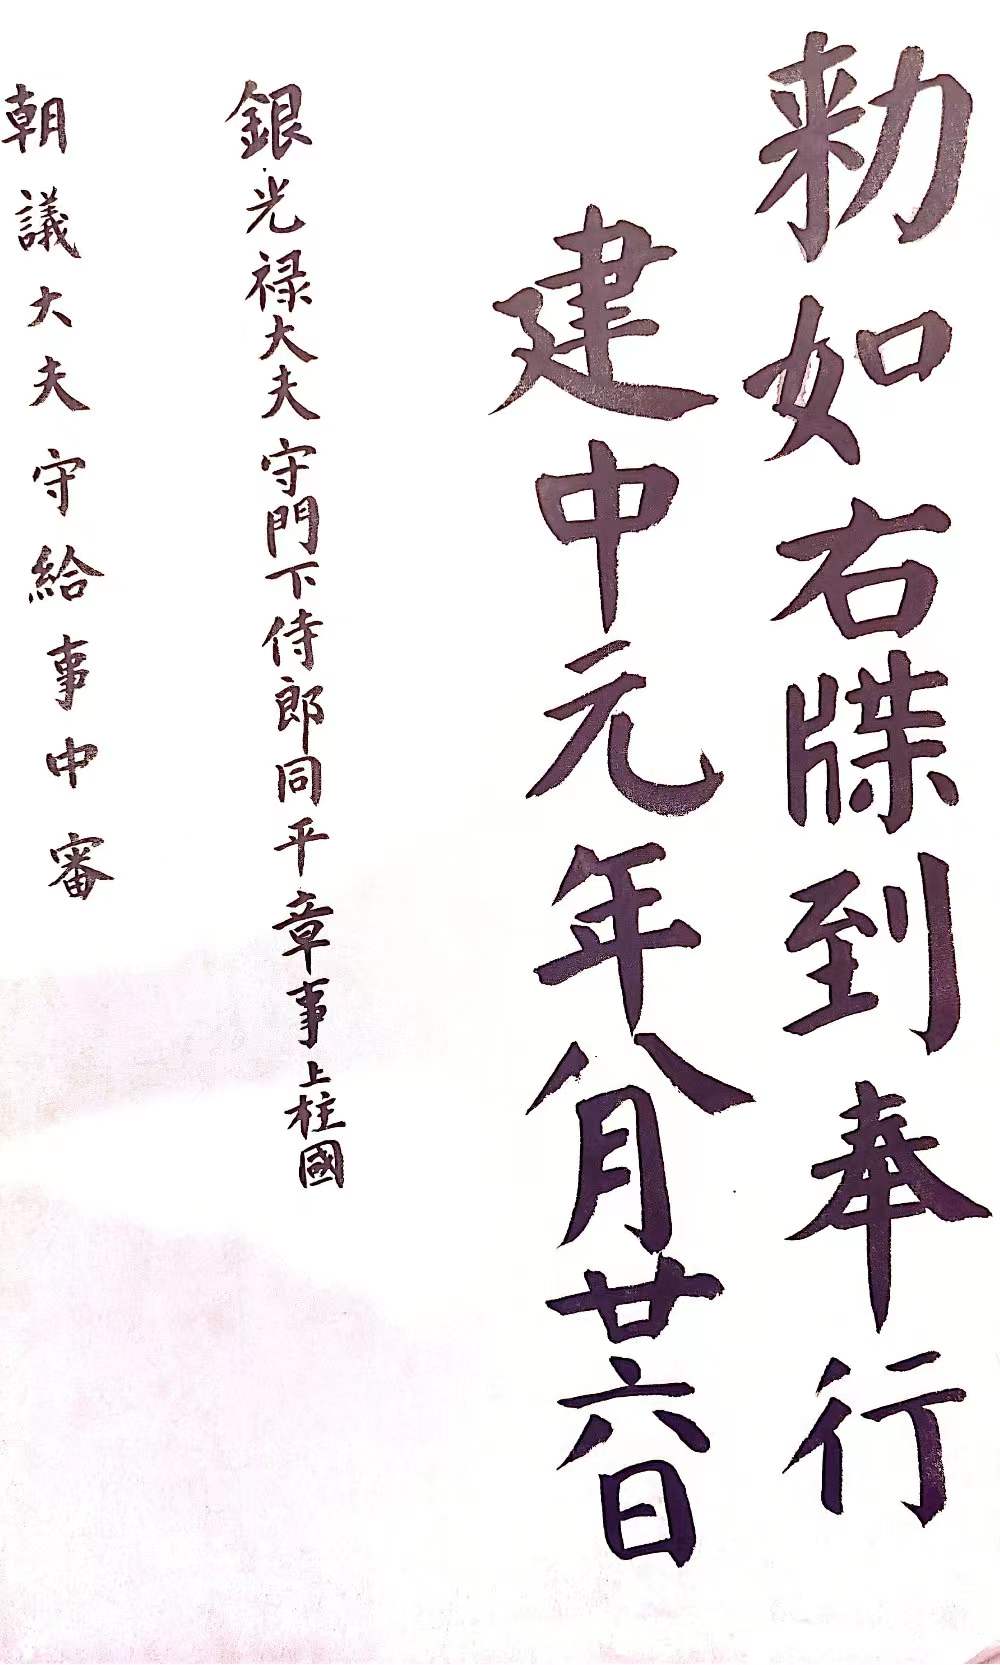 勑如右牒到奉行
建中元年八月廿六日
銀光禄大夫守門下侍郎同平章事上柱國
朝議大夫守給事中審